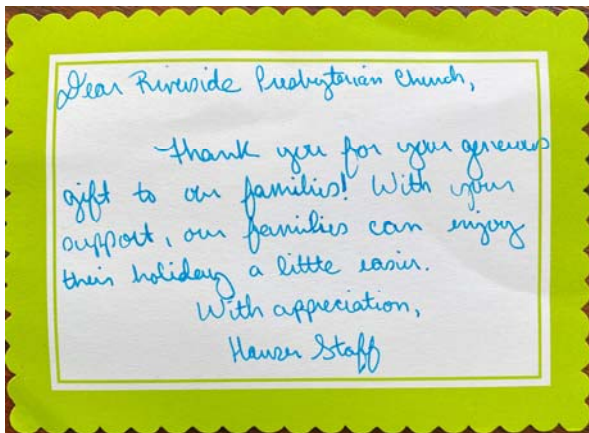 Dear Riverside Presbyterian Church,
Thank you for your generous
gift to our families! With your
support, our families can enjoy
their holiday a little easier.
With appreciation,
Hauser Staff